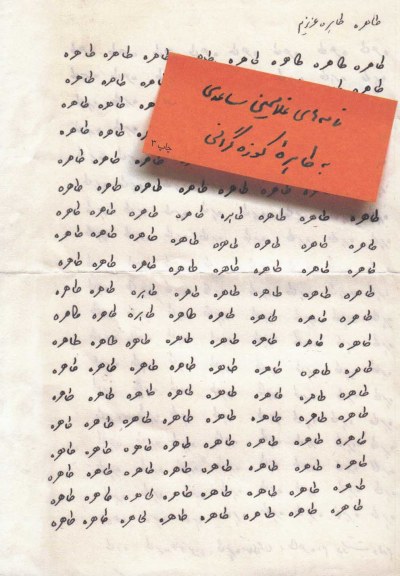 طاهره، طاهره عزیزم
طاهره طاهره طاهره طاهره طاهره طاهره طاهره طاهره
طاهره طاهره طاهره
طاهره طاهره
طاهره طاهره
طاهره طاهره
طاهره طاهره طاهره
نامه‌های غلامحسین ساعدی
به طاهره کوزه‌گرانی
چاپ ۳
طاهره طاهره طاهره طاهره طاهره طاهره طاهره طاهره
طاهره طاهره طاهره طاهره طاهره طاهره طاهره طاهره
طاهره طاهره طاهره طاهره طاهره طاهره طاهره طاهره
طاهره طاهره طاهره طاهره طاهره طاهره طاهره طاهره
طاهره طاهره طاهره طاهره طاهره طاهره طاهره طاهره
طاهره طاهره طاهره طاهره طاهره طاهره طاهره طاهره
طاهره طاهره طاهره طاهره طاهره طاهره طاهره طاهره
طاهره طاهره طاهره طاهره طاهره طاهره طاهره طاهره
طاهره طاهره طاهره طاهره طاهره طاهره طاهره طاهره
طاهره طاهره طاهره طاهره طاهره طاهره طاهره طاهره
طاهره طاهره طاهره طاهره طاهره طاهره طاهره طاهره
طاهره طاهره طاهره طاهره طاهره طاهره طاهره طاهره
طاهره طاهره طاهره طاهره طاهره طاهره طاهره طاهره